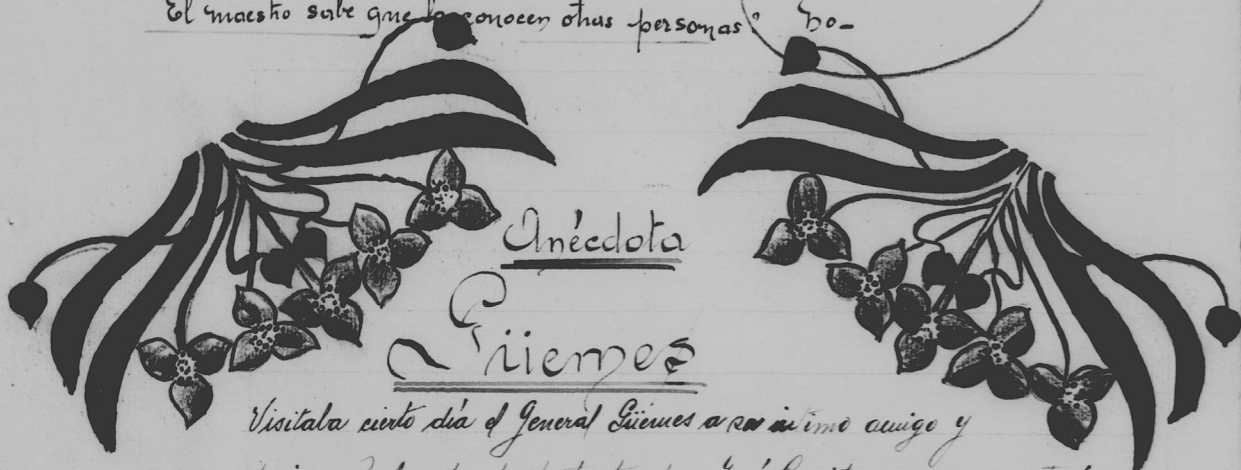 El maestro sabe que la conocen otras personas? No-
Anécdota
Güemes
Visitaba cierto día el General Güemes a su íntimo amigo y